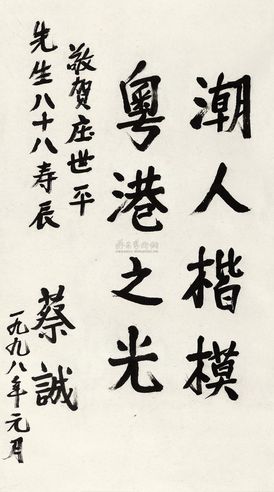 潮人楷模
粤港之光
敬贺庄世平
先生八十八寿辰
蔡誠
一九九八年元月